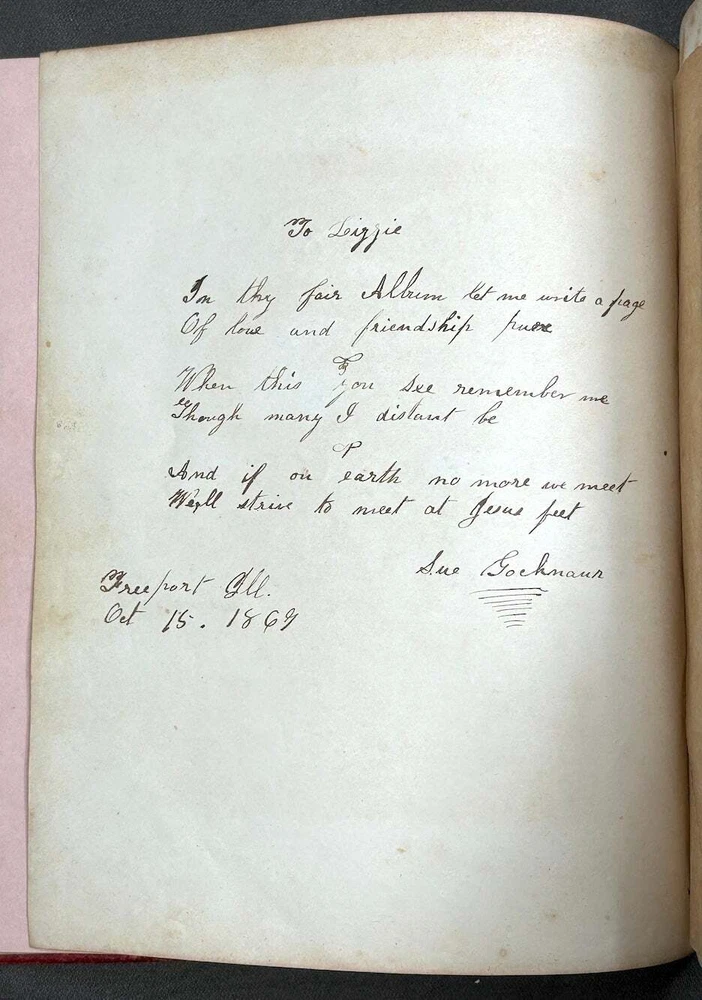 To Lizzie
In thy fair Album let me write a page
Of love and friendship pure
When this you see remember me
Though many I distant be
And if on earth no more we meet
We'll strive to meet at Jesus feet
Sue Gochnaur
Freeport Ill.
Oct 15. 1869